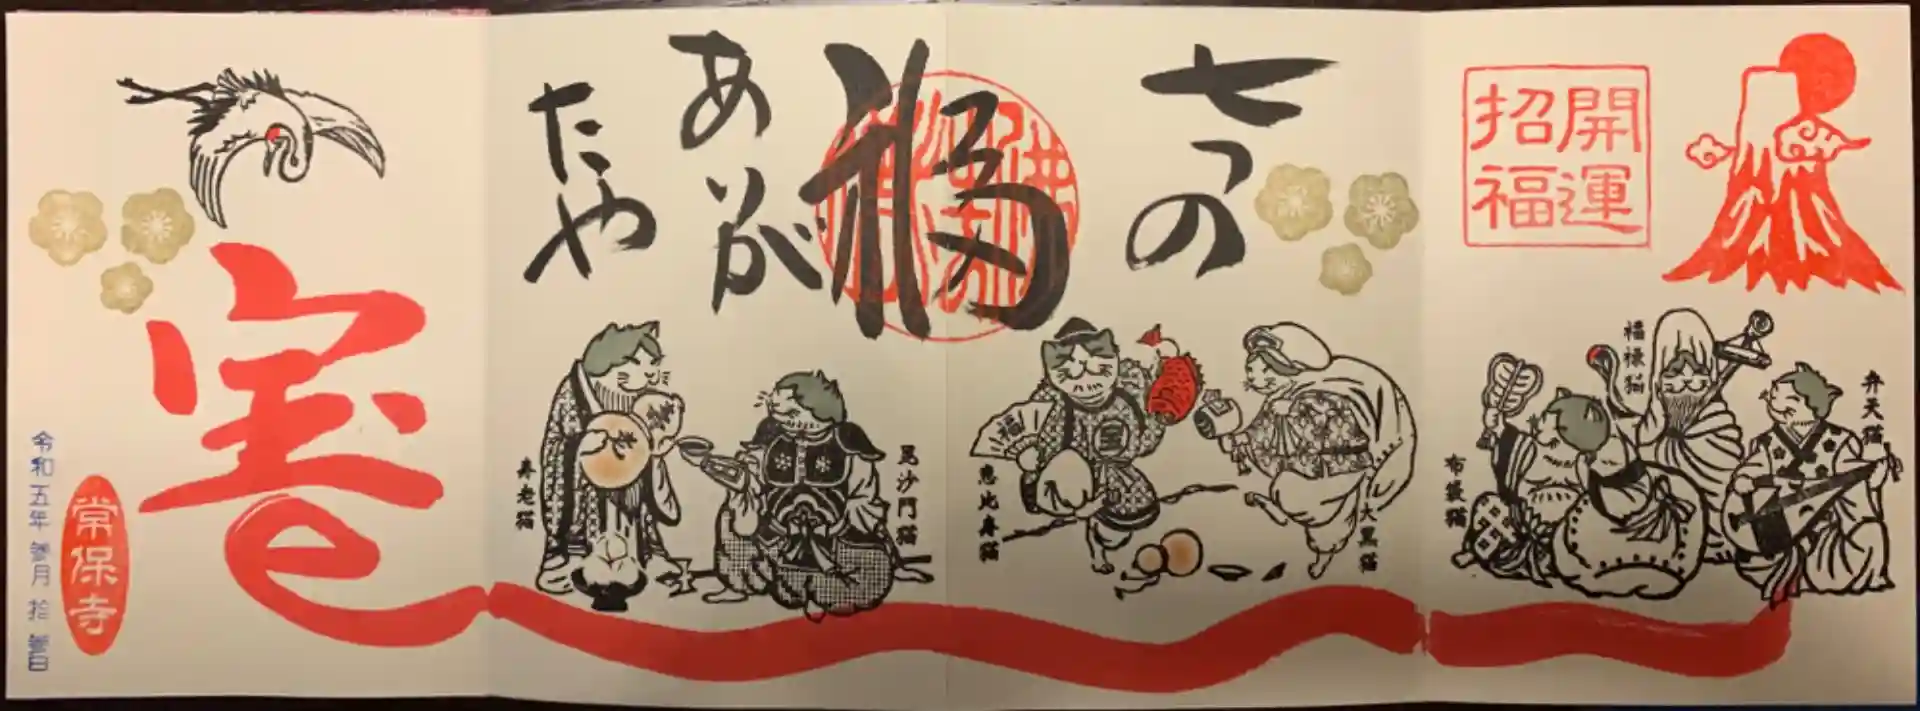 開運
招福
七つの
福
あ
りが
たや
福禄猫
弁天猫
布袋猫
大黒猫
恵比寿猫
福
宝
毘沙門猫
寿老猫
寿
老
宝
常保寺
令和五年 参月 拾 参日